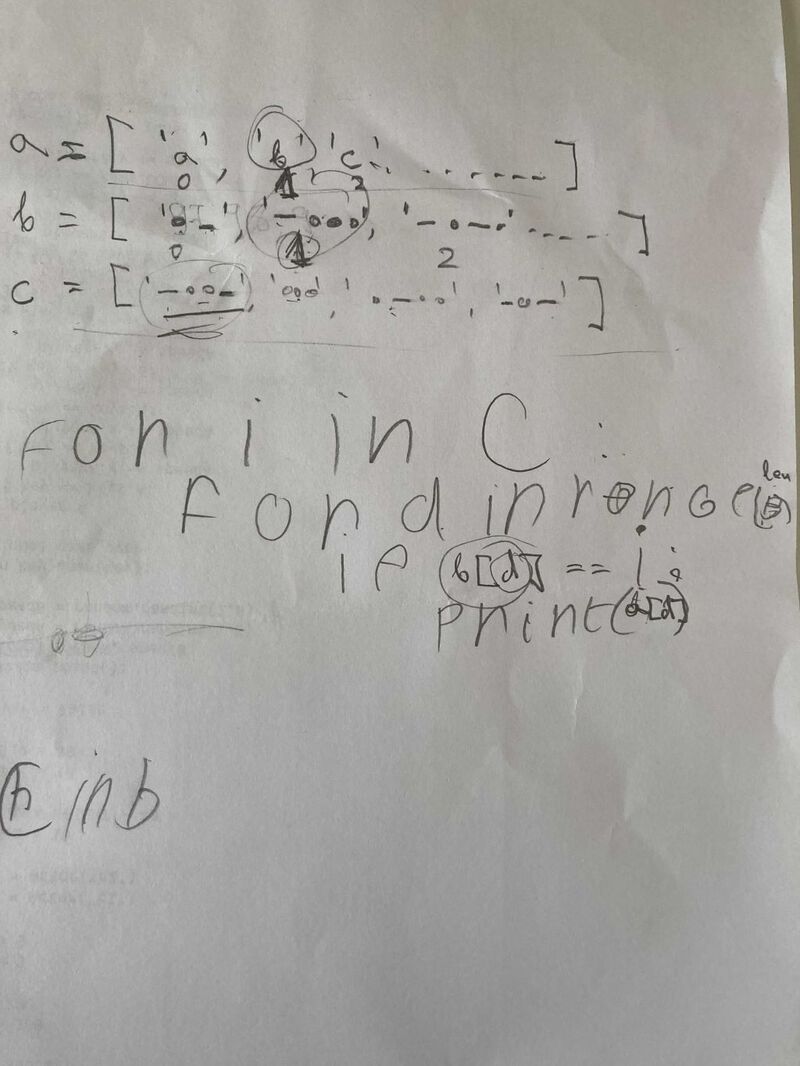 a = ['a', 'b' 'c'. ........]
0 1 2
b = ['•-', '-•••', '-•-•'........]
0 1 2
c = ['-••-', '•••' '•-••', '-•-']
For i in C:
For d in range(len(b))
if b[d] == i:
print(a[d])
in b